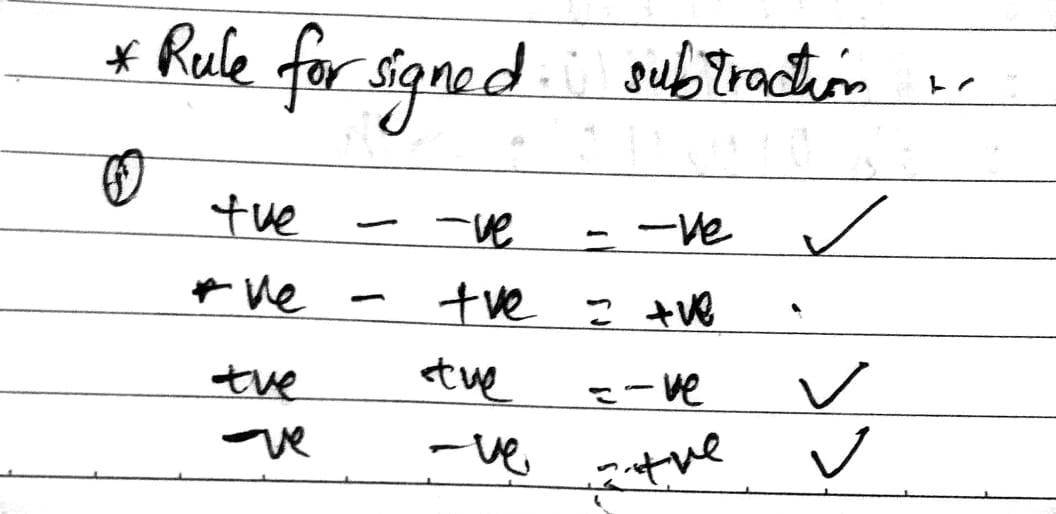 * Rule for signed subtraction :-
+ve - -ve = -ve ✓
+ve - +ve = +ve
+ve +ve = -ve ✓
-ve -ve = +ve ✓